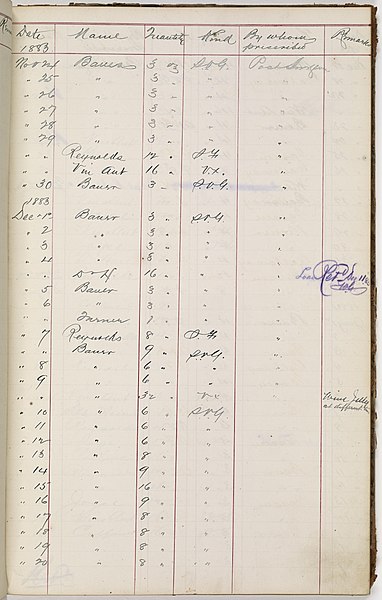 Date Name Quantity Kind By whom Remarks
1883 prescribed
Nov 24 Bauer 3 oz S.V.G. Post Surgeon
" 25 " 3 " " "
" 26 " 3 " " "
" 27 " 3 " " "
" 28 " 3 " " "
" 29 " 3 " " "
" " Reynolds 12 " "
" " Vin Ant 16 " V.x. "
" 30 Bauer 3 " S.V.G. "
1883
Dec 1st Bauer 3 " S.V.G. "
" 2 " 3 " " "
" 3 " 3 " " "
" 4 " 3 " " "
" " 16 " " "
" 5 Bauer 3 " " "
" 6 " 3 " " "
" " Turner 1 " " "
" 7 Reynolds 8 " "
" " Bauer 9 " S.V.G. "
" 8 " 6 " " "
" 9 " 6 " " "
" " " 32 " V.x " Wine Jelly
at different
" 10 " 6 " S.V.G. "
" 11 " 6 " "
" 12 " 6 " "
" 13 " 8 " "
" 14 " 9 " "
" 15 " 16 " "
" 16 " 9 " "
" 17 " 8 " "
" 18 " 8 " "
" 19 " 8 " "
" 20 " 8 " "